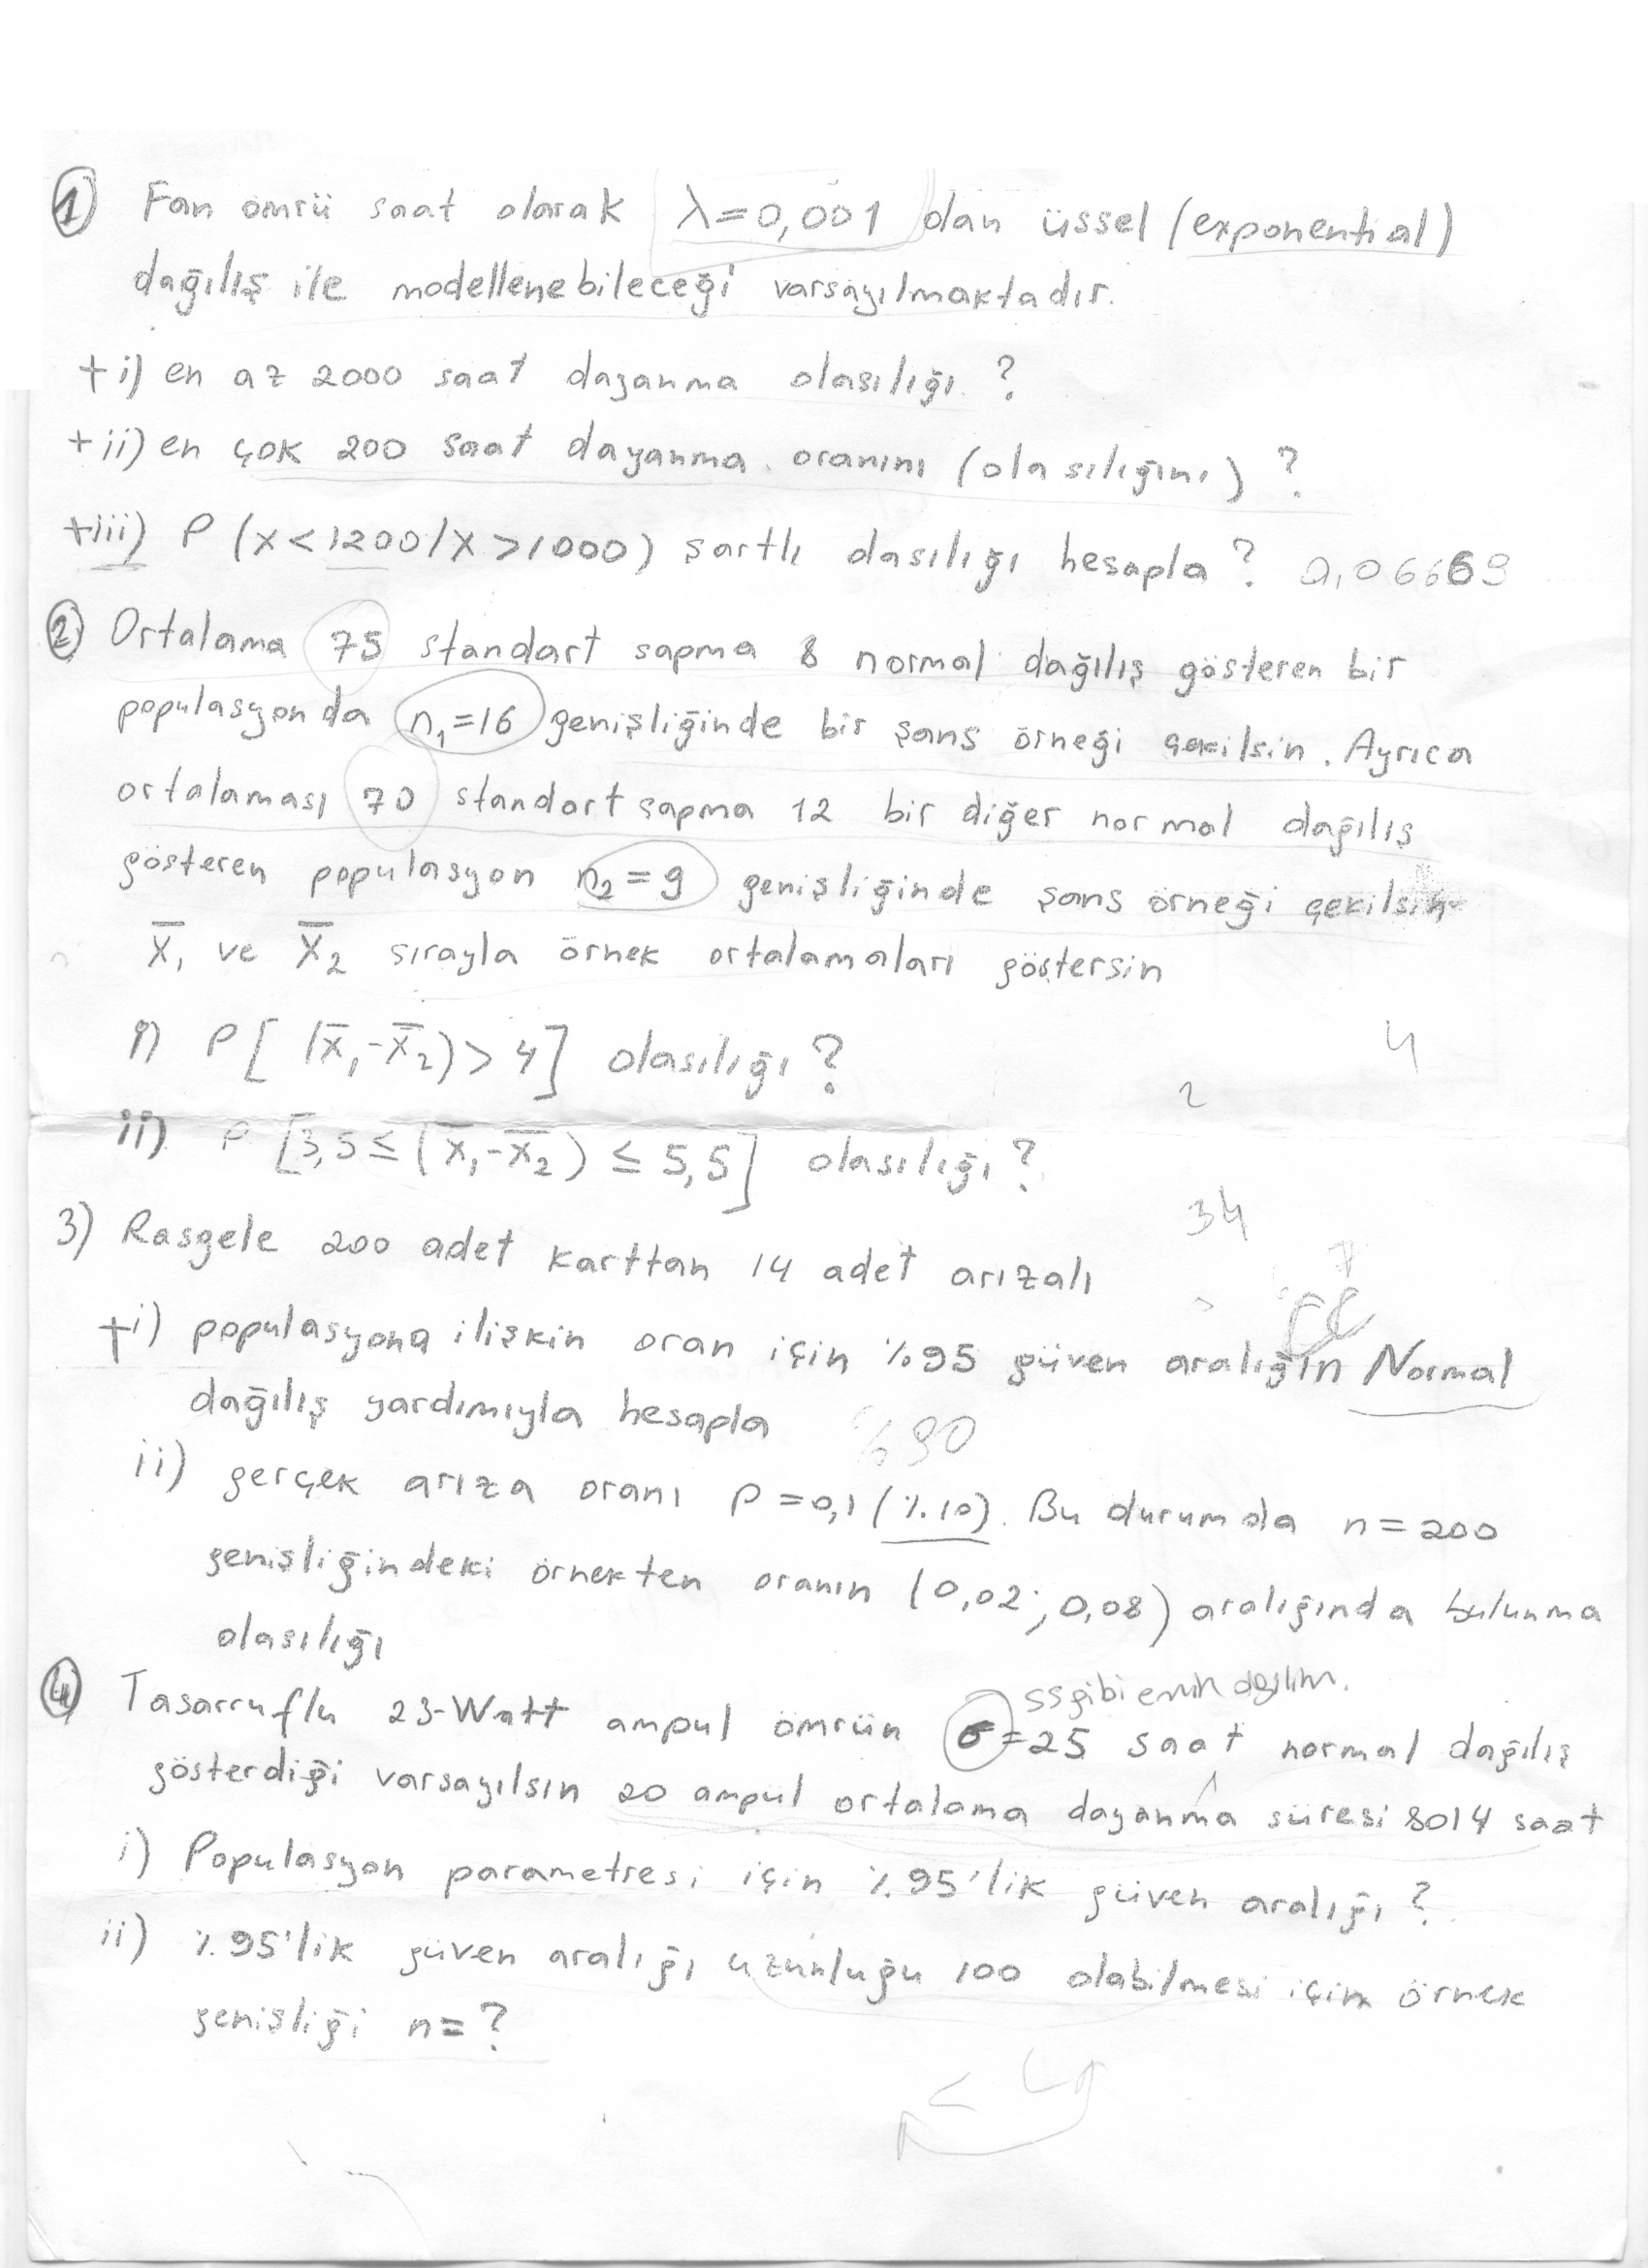 1 Fan ömrü saat olarak λ=0,001 olan üssel (exponential)
dağılış ile modellenebileceği varsayılmaktadır.
+i) en az 2000 saat dayanma olasılığı ?
+ii) en çok 200 saat dayanma oranını (olasılığını) ?
+iii) P (x<1200/x>1000) şartlı olasılığı hesapla ? 0,06669
2 Ortalama 75 standart sapma 8 normal dağılış gösteren bir
populasyonda n₁=16 genişliğinde bir şans örneği çekilsin. Ayrıca
ortalaması 70 standart sapma 12 bir diğer normal dağılış
gösteren populasyon n₂=9 genişliğinde şans örneği çekilsin
X̄₁ ve X̄₂ sırayla örnek ortalamaları göstersin
i) P[ (X̄₁-X̄₂)>4] olasılığı ?
4
2
ii) P [3,5≤(X̄₁-X̄₂) ≤ 5,5] olasılığı ?
34
3) Rasgele 200 adet karttan 14 adet arızalı
+i) populasyona ilişkin oran için %95 güven aralığın Normal
dağılış yardımıyla hesapla
%90
ii) gerçek arıza oranı P=0,1 (%10). Bu durumda n=200
genişliğindeki örnekten oranın (0,02; 0,08) aralığında bulunma
olasılığı
4 Tasarruflu 23-Watt ampul ömrün σ=25 saat normal dağılış
gösterdiği varsayılsın 20 ampul ortalama dayanma süresi 8014 saat
i) Populasyon parametresi için %95'lik güven aralığı ?
ii) %95'lik güven aralığı uzunluğu 100 olabilmesi için örnek
genişliği n=?